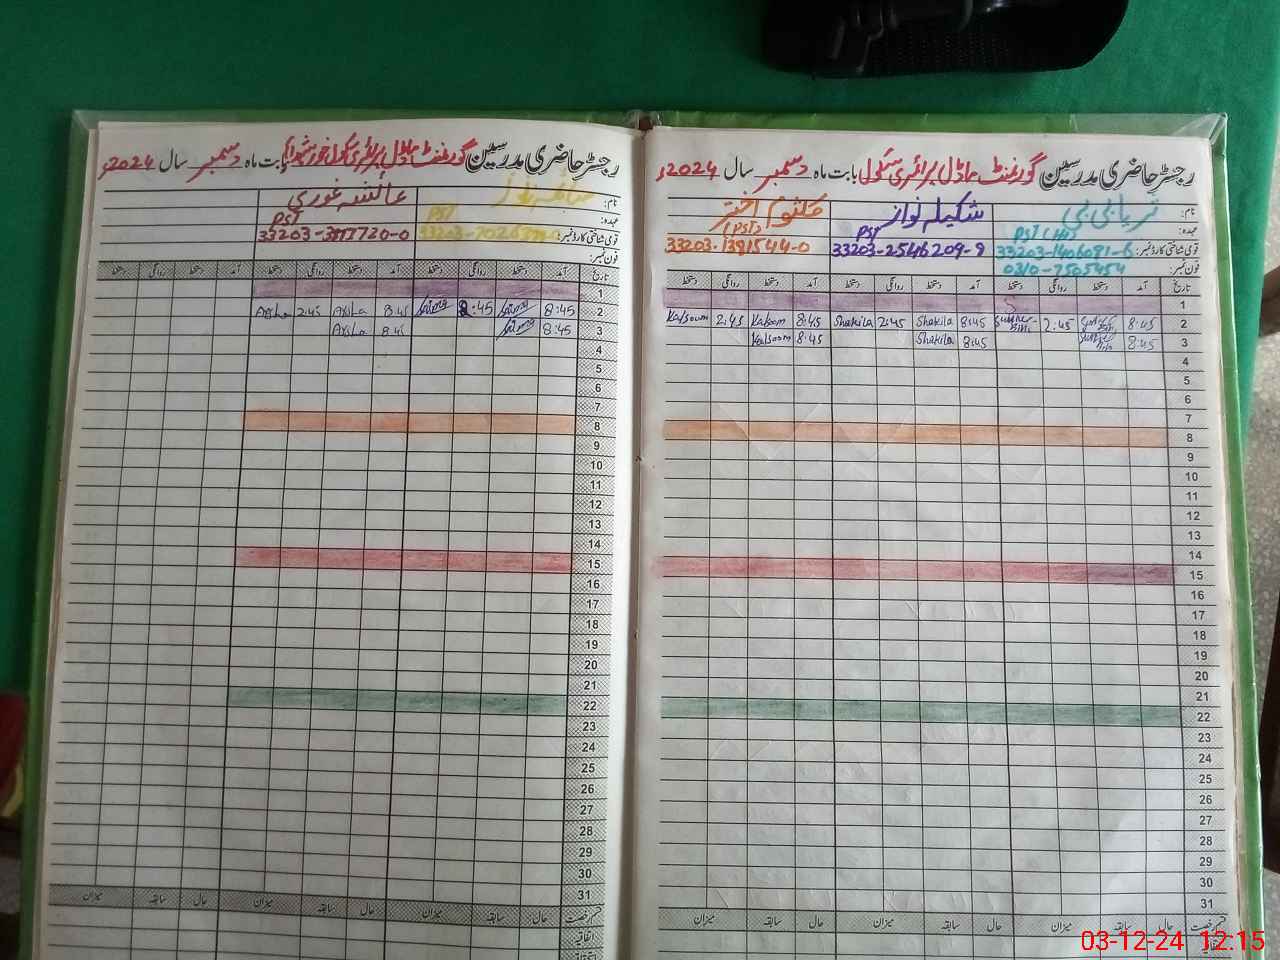 رجسٹر حاضری مدرسین گورنمنٹ ماڈل پرائمری سکول بابت ماہ دسمبر سال 2024ء
نام: ثریا بی بی شکیلہ نواز کلثوم اختر
عہدہ: PST (HT) PST (PST)
قومی شناختی کارڈ نمبر: 33203-1406091-6 33203-2546209-9 33203-1381544-0
فون نمبر: 0310-7505454
تاریخ آمد دستخط روانگی دستخط آمد دستخط روانگی دستخط آمد دستخط روانگی دستخط
1
2 8:45 2:45 8:45 Shakila 2:45 Shakila 8:45 Kalsoom 2:45 Kalsoom
3 8:45 8:45 Shakila 8:45 Kalsoom
4
5
6
7
8
9
10
11
12
13
14
15
16
17
18
19
20
21
22
23
24
25
26
27
28
29
30
31
قسم رخصت حال سابقہ میزان حال سابقہ میزان حال سابقہ میزان
اتفاقیہ
رجسٹر حاضری مدرسین گورنمنٹ ماڈل پرائمری سکول بابت ماہ دسمبر سال 2024ء
نام: عائشہ غوری
عہدہ: PST PST
قومی شناختی کارڈ نمبر: 33203-
فون نمبر:
تاریخ آمد دستخط روانگی دستخط آمد دستخط روانگی دستخط آمد دستخط روانگی دستخط
1
2 8:45 2:45 8:45 Aysha 2:45 Aysha
3 8:45 8:45 Aysha
4
5
6
7
8
9
10
11
12
13
14
15
16
17
18
19
20
21
22
23
24
25
26
27
28
29
30
31
قسم رخصت حال سابقہ میزان حال سابقہ میزان حال سابقہ میزان
اتفاقیہ
03-12-24 12:15